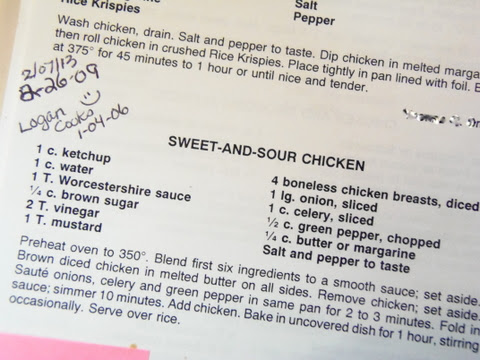 Rice Krispies
Salt
Pepper
Wash chicken, drain. Salt and pepper to taste. Dip chicken in melted marga
then roll chicken in crushed Rice Krispies. Place tightly in pan lined with foil. B
at 375° for 45 minutes to 1 hour or until nice and tender.
2/07/13
2-26-09
Logan
Cooks
1-04-06
SWEET-AND-SOUR CHICKEN
1 c. ketchup
1 c. water
1 T. Worcestershire sauce
¼ c. brown sugar
2 T. vinegar
1 T. mustard
4 boneless chicken breasts, diced
1 lg. onion, sliced
1 c. celery, sliced
½ c. green pepper, chopped
¼ c. butter or margarine
Salt and pepper to taste
Preheat oven to 350°. Blend first six ingredients to a smooth sauce; set aside.
Brown diced chicken in melted butter on all sides. Remove chicken; set aside.
Sauté onions, celery and green pepper in same pan for 2 to 3 minutes. Fold in
sauce; simmer 10 minutes. Add chicken. Bake in uncovered dish for 1 hour, stirring
occasionally. Serve over rice.